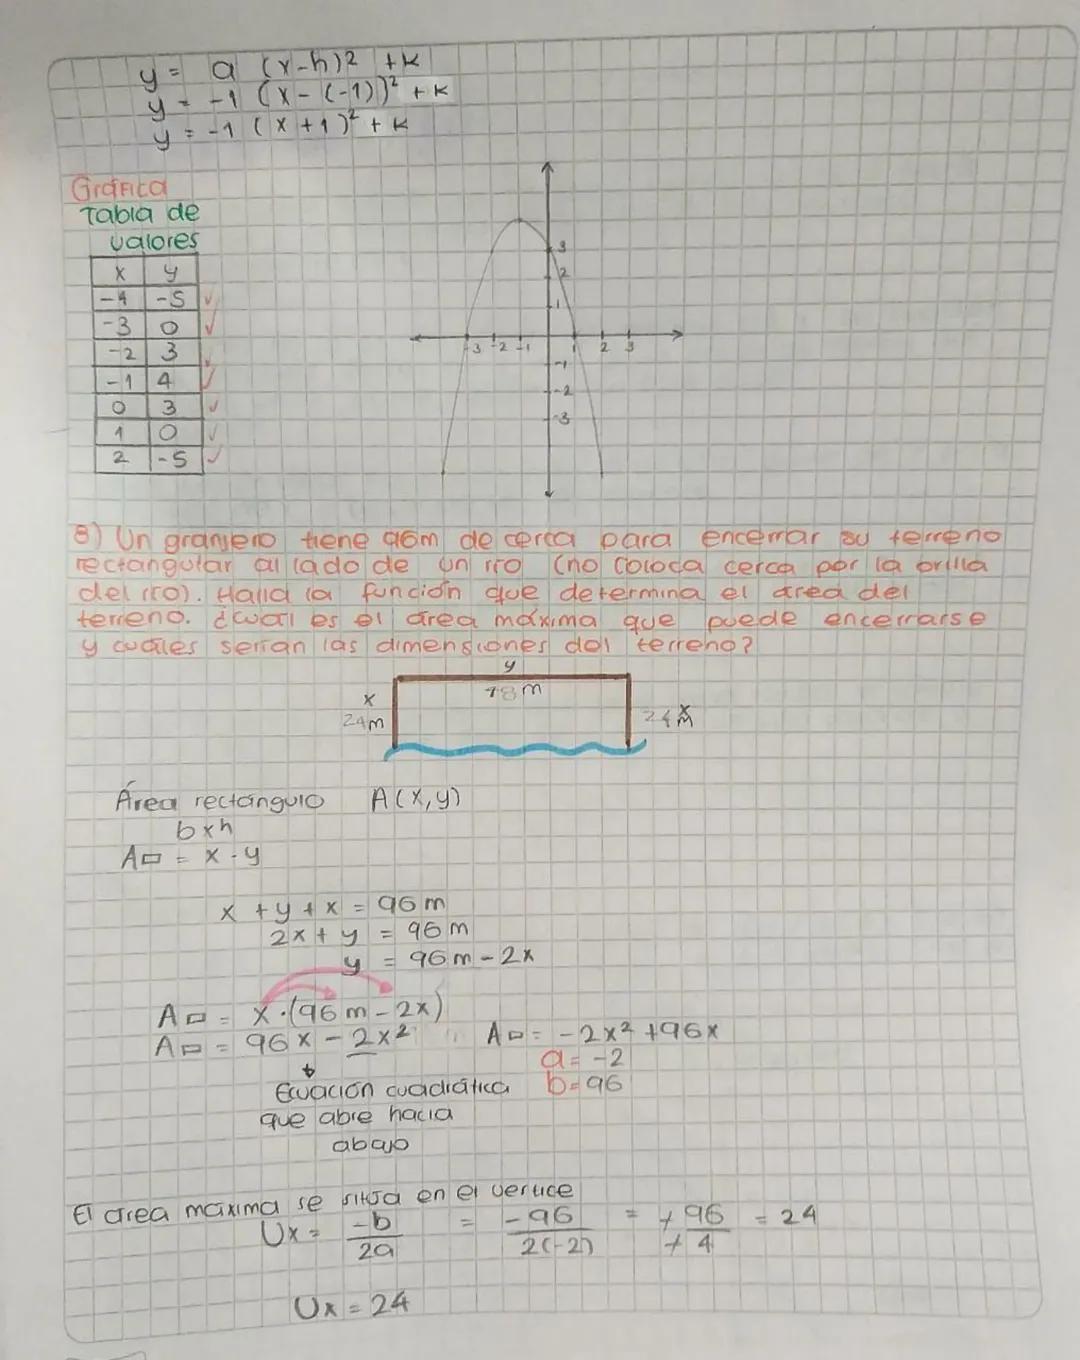 y = a (x-h)2 +k
y = -1 (x-(-1))² + k
y = -1 (x+1)² + k
Gráfica
Tabla de
valores
x y
-4 -5
-3 0
-2 3
-1 4
0 3
1 0
2 -5
3
2
1
-3 -2 -1 1 2 3
-1
-2
-3
8) Un granjero tiene 96m de cerca para encerrar su terreno
rectangular al lado de un río (no coloca cerca por la orilla
del río). Halla la función que determina el área del
terreno. ¿Cuál es el área máxima que puede encerrarse
y cuáles serían las dimensiones del terreno?
y
x 48m x
24m 24m
Área rectángulo A(x,y)
bxh
A▭ = x · y
x + y + x = 96m
2x + y = 96m
y = 96m - 2x
A▭ = x·(96m - 2x)
A▭ = 96x - 2x² A▭ = -2x² +96x
a = -2
Ecuación cuadrática b = 96
que abre hacia
abajo
El área máxima se sitúa en el vertice
Vx = -b/2a = -96/2(-2) = +96/+4 = 24
Vx = 24